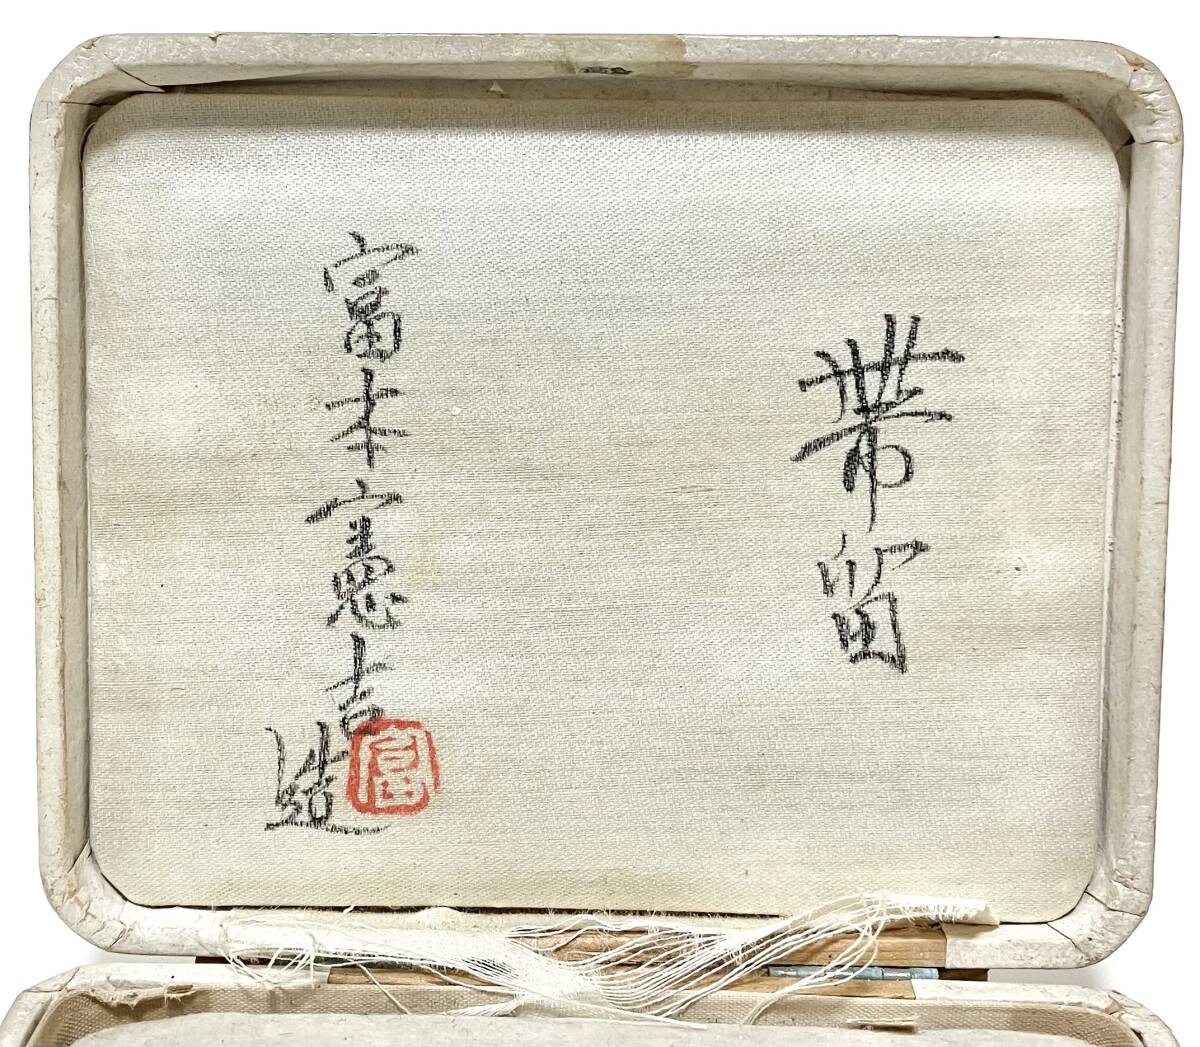 帯留
富本憲吉造
富